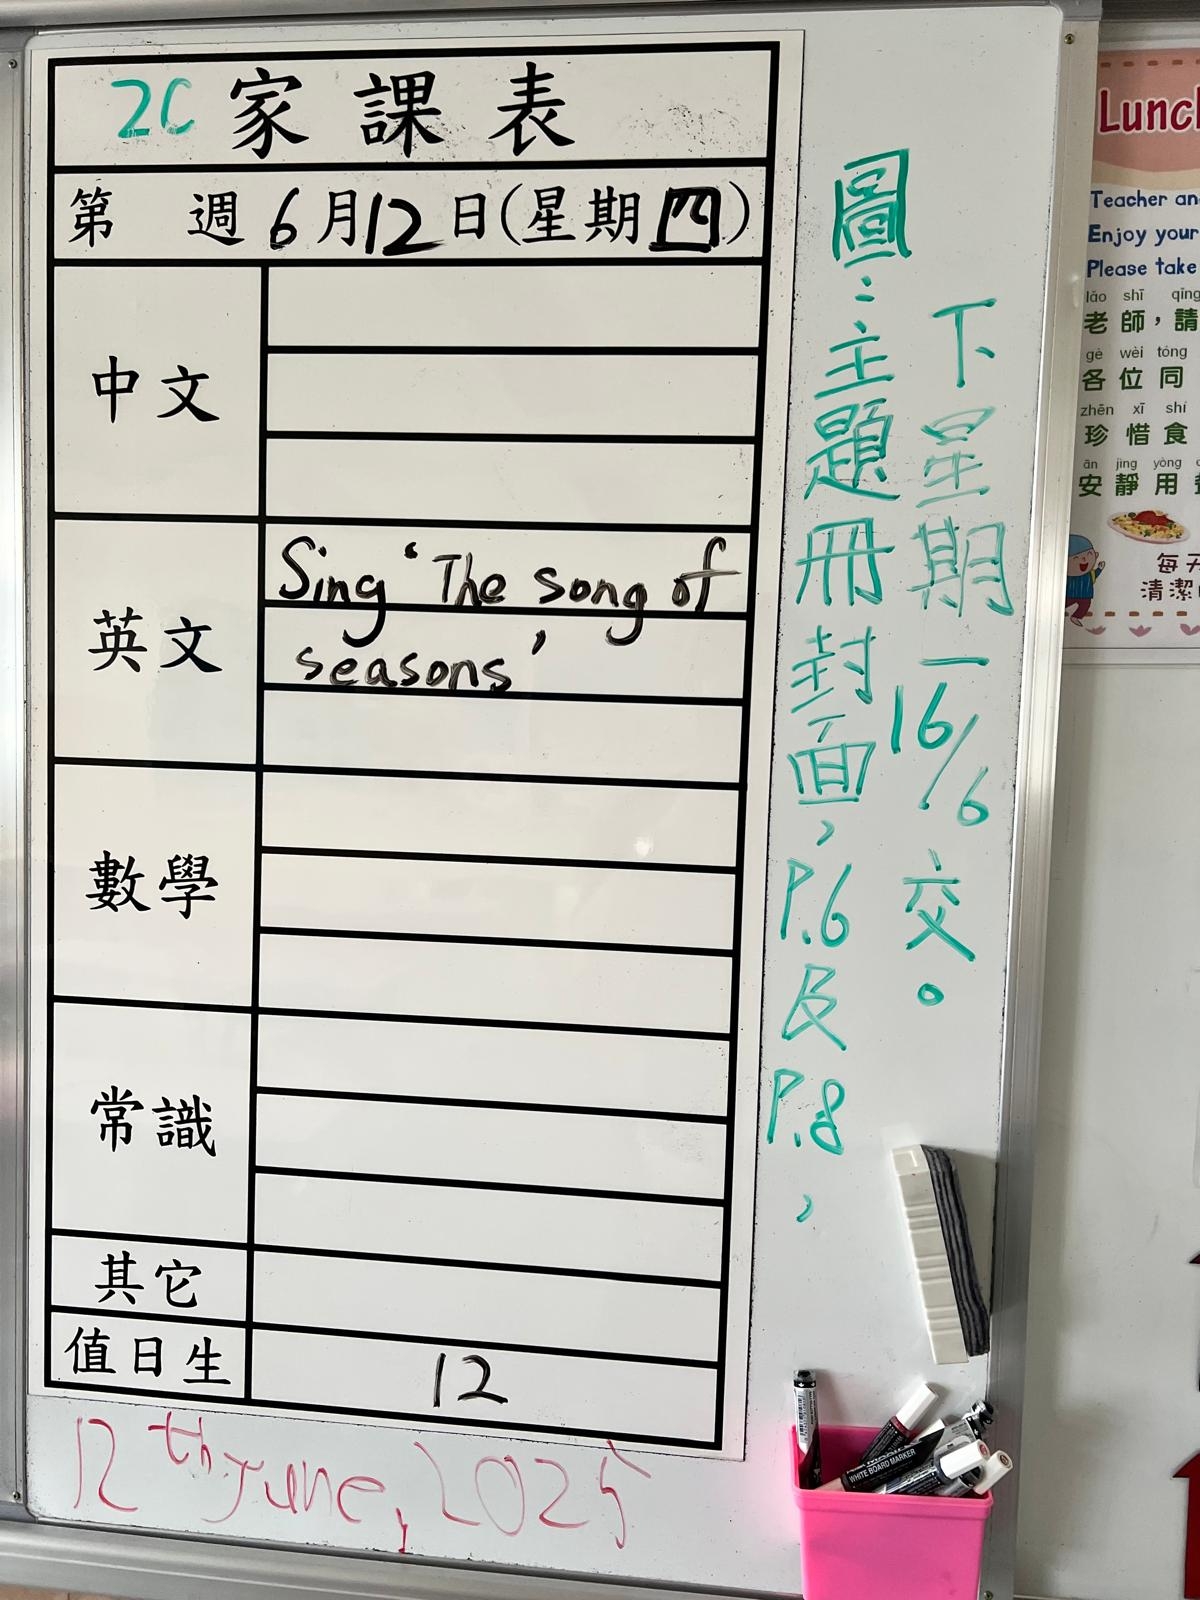 2C 家課表
第 週 6月12日(星期四)
中文
英文
Sing 'The song of
seasons'
數學
常識
其它
值日生
12
12th June, 2025
圖：主題冊封面，P.6及P.8，
下星期一16/6交。
Lunch
Teacher an
Enjoy your
Please take
lǎo shī qǐng
老師，請
gè wèi tóng
各位同
zhēn xī shí
珍惜食
ān jìng yòng
安靜用
每天
清潔
WHITE BOARD MARKER